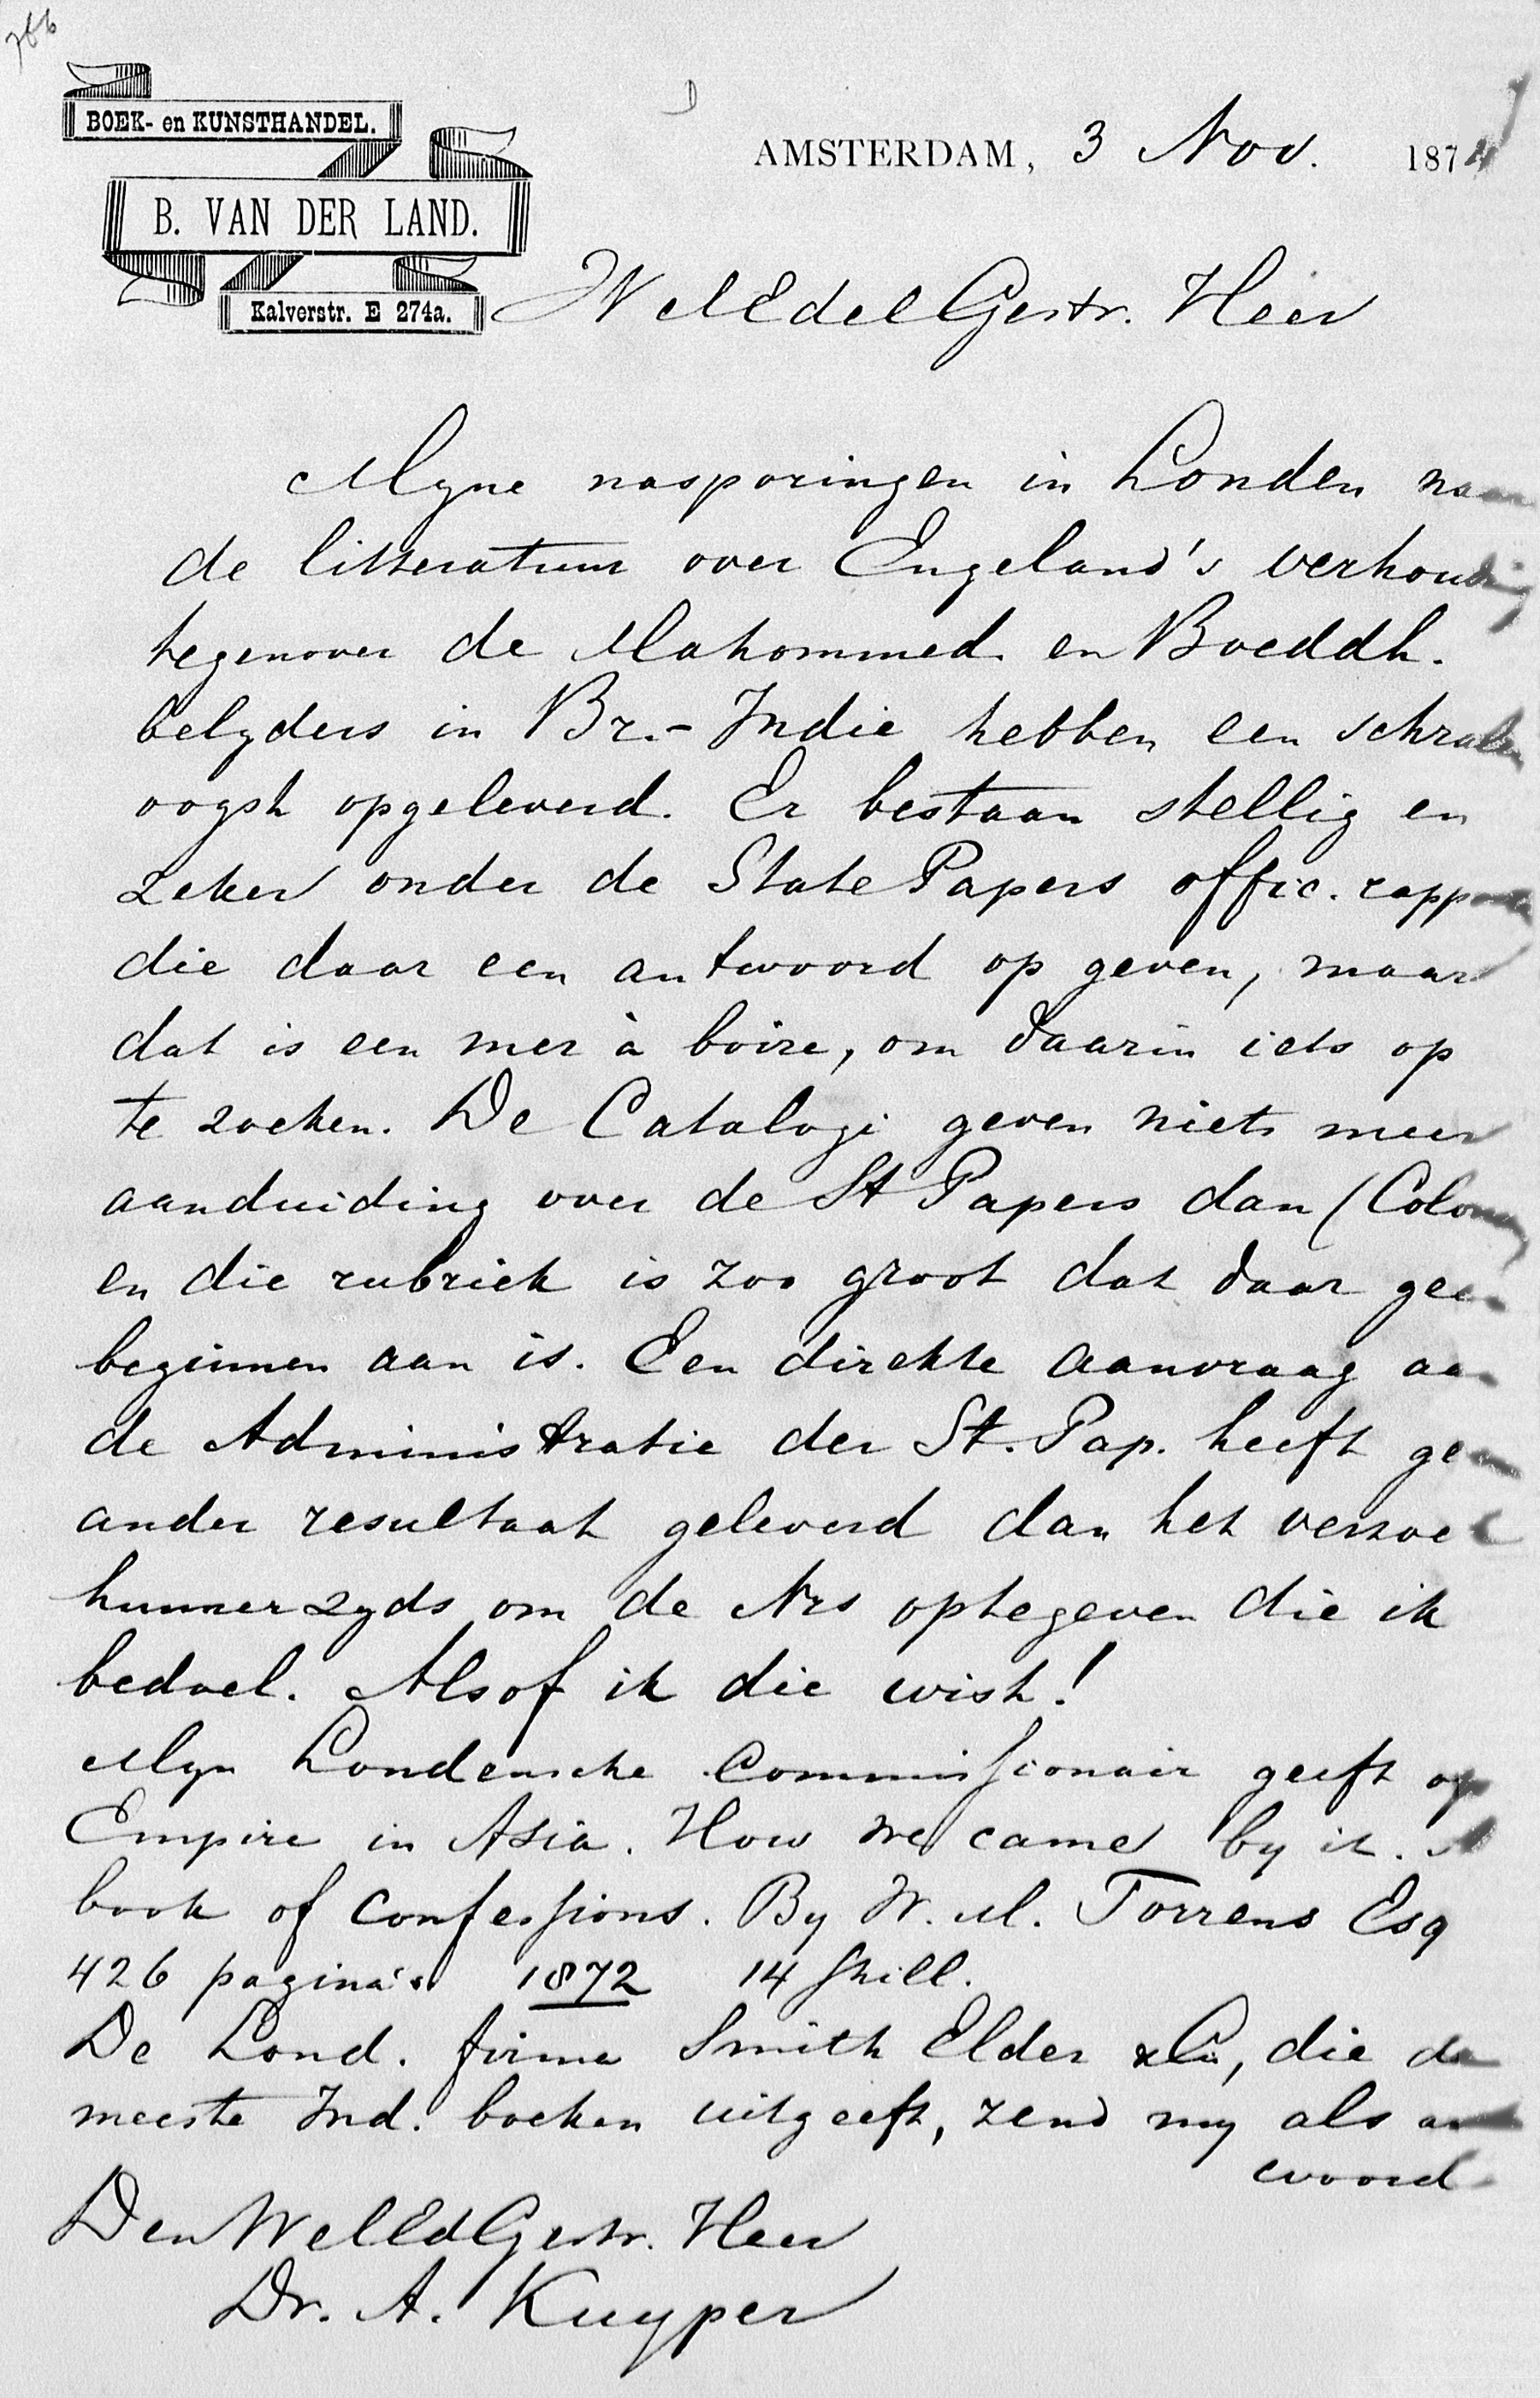 BOEK- en KUNSTHANDEL.
B. VAN DER LAND.
Kalverstr. E 274a.
AMSTERDAM, 3 Nov. 1874
WelEdelGestr. Heer
Myne nasporingen in Londen naar
de litteratuur over Engeland's verhouding
tegenover de Mahommed. en Boeddh.
belyders in Br.- Indie hebben een schralen
oogst opgeleverd. Er bestaan stellig en
zeker onder de State Papers offic. rapporten
die daar een antwoord op geven, maar
dat is een mer à boire, om daarin iets op
te zoeken. De Catalogi geven niets meer
aanduiding over de St Papers dan (Colony)
en die rubriek is zoo groot dat daar geen
beginnen aan is. Een direkte aanvraag aan
de Administratie der St. Pap. heeft geen
ander resultaat geleverd dan het verzoek
hunnerzyds om de Nrs optegeven die ik
bedoel. Alsof ik die wist!
Myn Londensche Commissionair geeft op
Empire in Asia. How we came by it. A
book of Confessions. By W. M. Torrens Esq
426 pagina's 1872 14 Shill.
De Lond. firma Smith Elder & Co, die de
meeste Ind. boeken uitgeeft, zend my als ant
woord
Den WelEdGestr. Heer
Dr. A. Kuyper